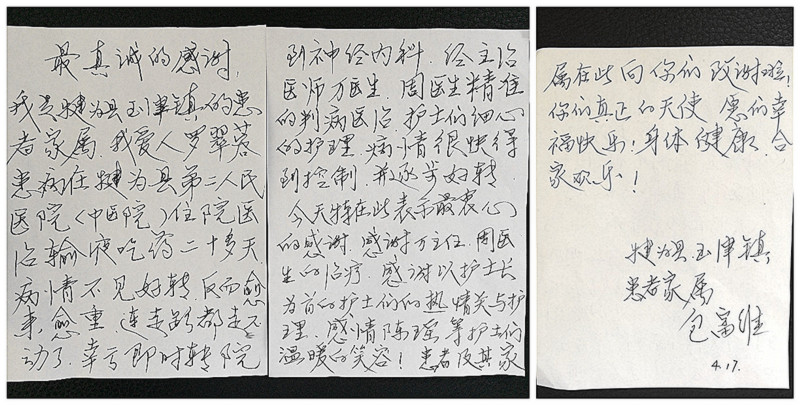 最真诚的感谢,
我是犍为县玉津镇的患
者家属.我爱人罗翠蓉
患病在犍为县第二人民
医院(中医院)住院医
治输液吃药二十多天
病情不见好转反而愈
来愈重 连走路都走不
动了.幸亏即时转院
到神经内科.经主治
医师万医生.周医生精准
的判病医治.护士们细心
的护理.病情很快得
到控制.并逐步好转.
今天特在此表示最衷心
的感谢.感谢万主任.周医
生的治疗.感谢以护士长
为首的护士们的热情关与护
理.感情陈瑶等护士们
温暖的笑容!患者及其家
属在此向你们致谢啦!
你们真正的天使 愿们幸
福快乐!身体健康.合
家欢乐!
犍为县玉津镇,
患者家属
包富维
4.17.